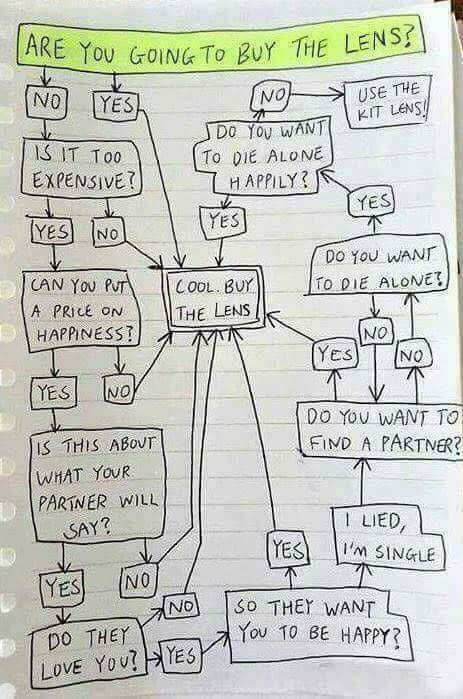 ARE YOU GOING TO BUY THE LENS?
NO
YES
IS IT TOO
EXPENSIVE?
YES
NO
CAN YOU PUT
A PRICE ON
HAPPINESS?
YES
NO
IS THIS ABOUT
WHAT YOUR
PARTNER WILL
SAY?
YES
NO
DO THEY
LOVE YOU?
NO
YES
SO THEY WANT
YOU TO BE HAPPY?
YES
I LIED,
I'M SINGLE
DO YOU WANT TO
FIND A PARTNER?
YES
NO
NO
DO YOU WANT
TO DIE ALONE?
YES
DO YOU WANT
TO DIE ALONE
HAPPILY?
NO
USE THE
KIT LENS!
YES
COOL. BUY
THE LENS